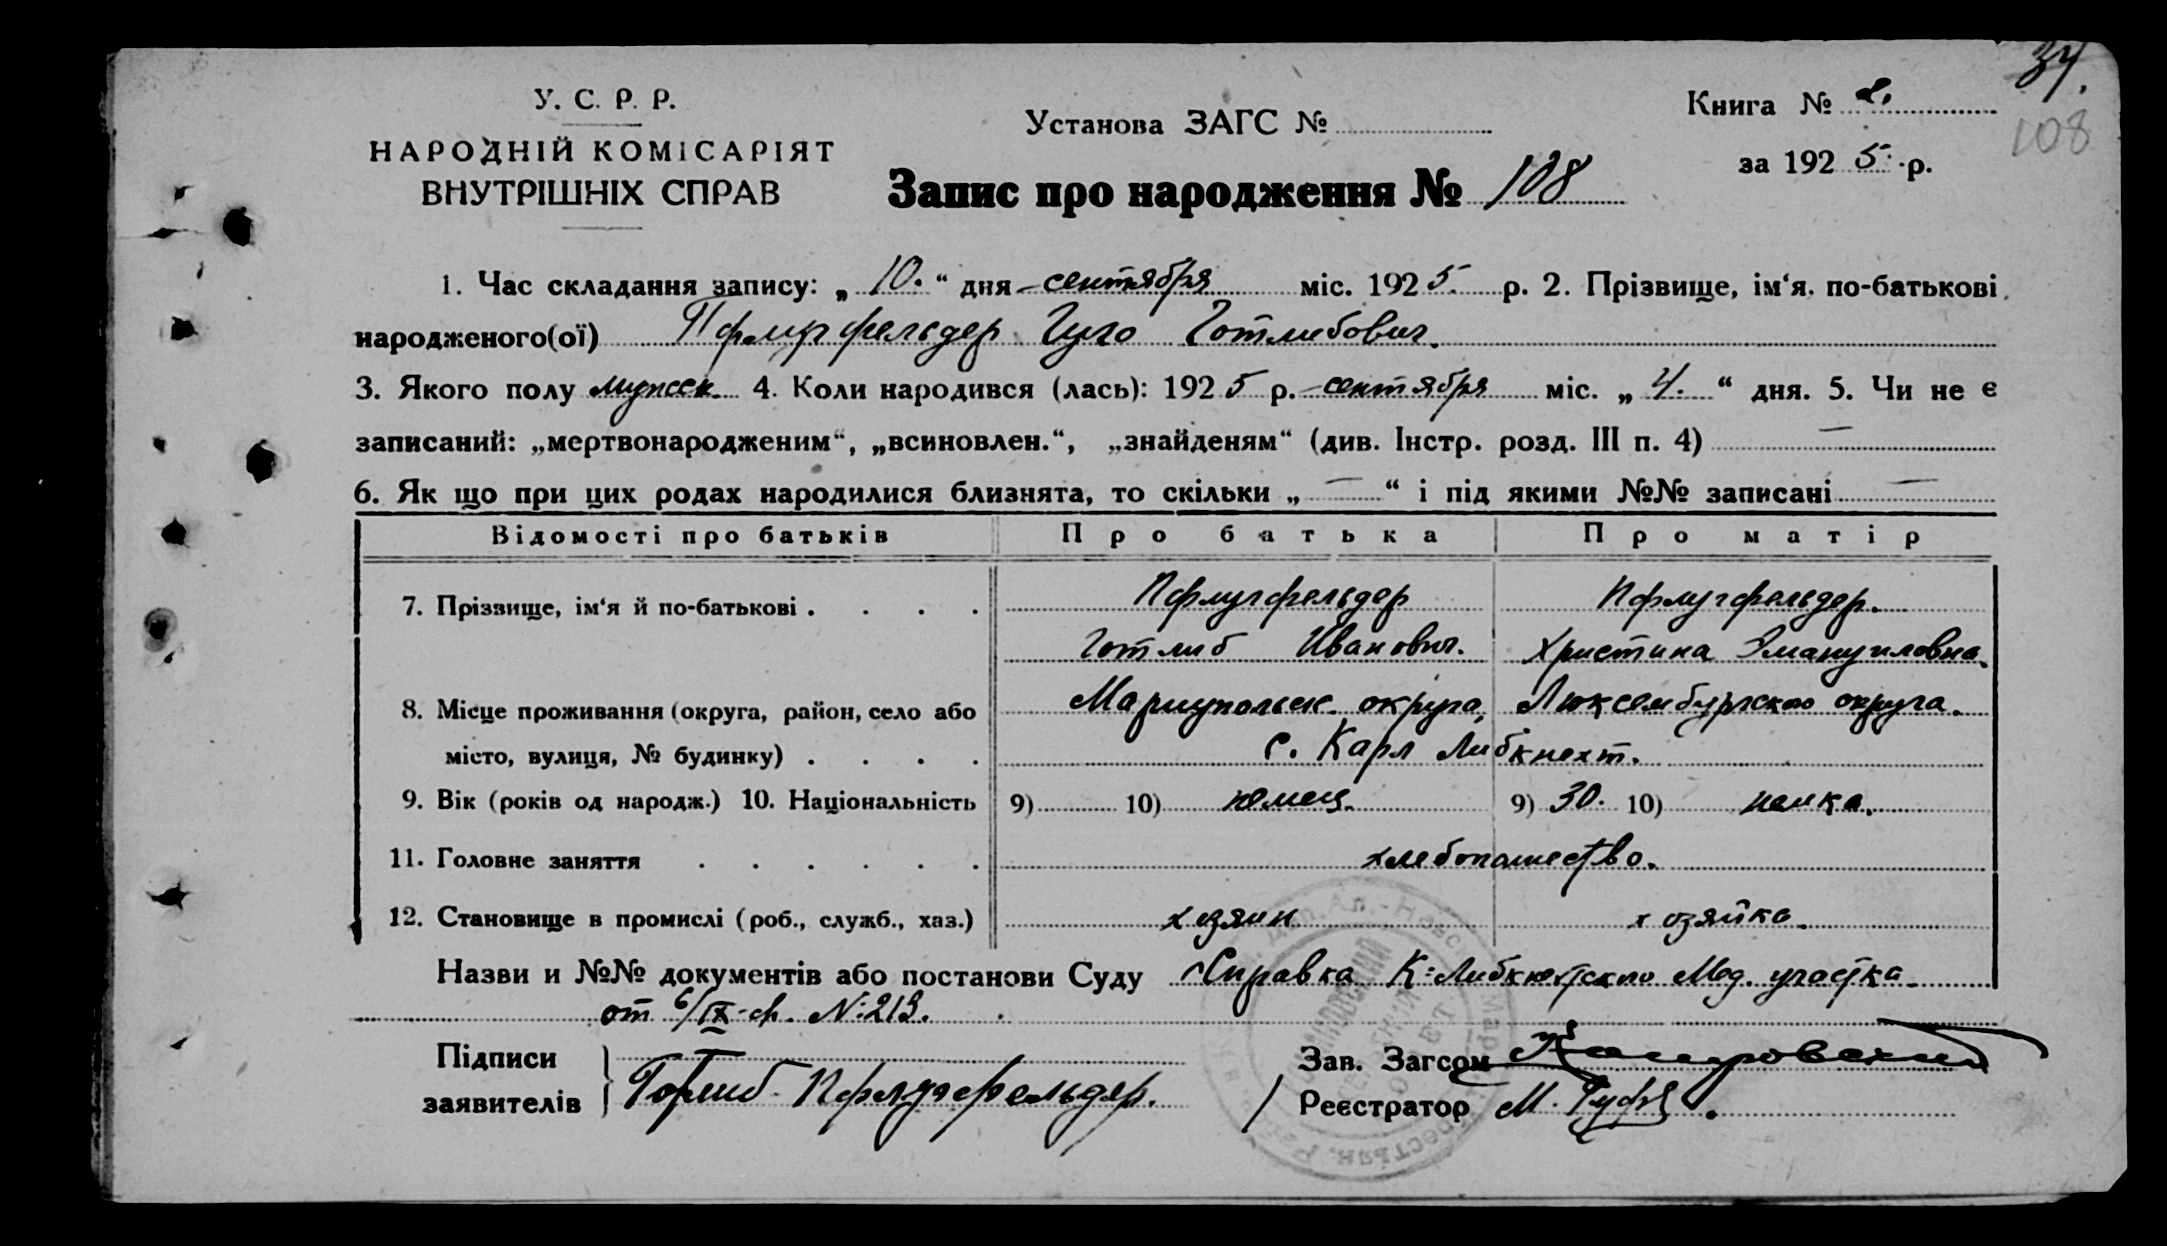 34.
У. С. Р. Р.
НАРОДНІЙ КОМІСАРІЯТ
ВНУТРІШНІХ СПРАВ
Установа ЗАГС №
Книга № 2.
108
за 1925 р.
Запис про народження № 108
1. Час складання запису: „10.“ дня сентября міс. 1925. р. 2. Прізвище, ім‘я, по-батькові
народженого(ої) Пфлугфельдер Гуго Готлибович.
3. Якого полу мужеск. 4. Коли народився (лась): 1925 р. сентября міс. „4.“ дня. 5. Чи не є
записаний: „мертвонародженим“, „всиновлен.“, „знайденям“ (див. Інстр. розд. III п. 4) —
6. Як що при цих родах народилися близнята, то скільки „—“ і під якими №№ записані —
Відомості про батьків Про батька Про матір
7. Прізвище, ім‘я й по-батькові . . . . Пфлугфельдер Пфлугфельдер.
Готлиб Иванович. Христина Эмануиловна.
8. Місце проживання (округа, район, село або Мариупольск. округа, Люксембургского округа.
місто, вулиця, № будинку) . . . . с. Карл Либкнехт.
9. Вік (років од народж.) 10. Національність 9) 10) немец. 9) 30. 10) немка.
11. Головне заняття . . . . . . хлебопашество.
12. Становище в промислі (роб., служб., хаз.) хозяин хозяйка.
Назви и №№ документів або постанови Суду Справка К-Либкнехтского Мед. участка.
от 6/IX- № 213.
Підписи
заявителів } Готлиб Пфлугфельдер.
Зав. Загсом
Реєстратор М.